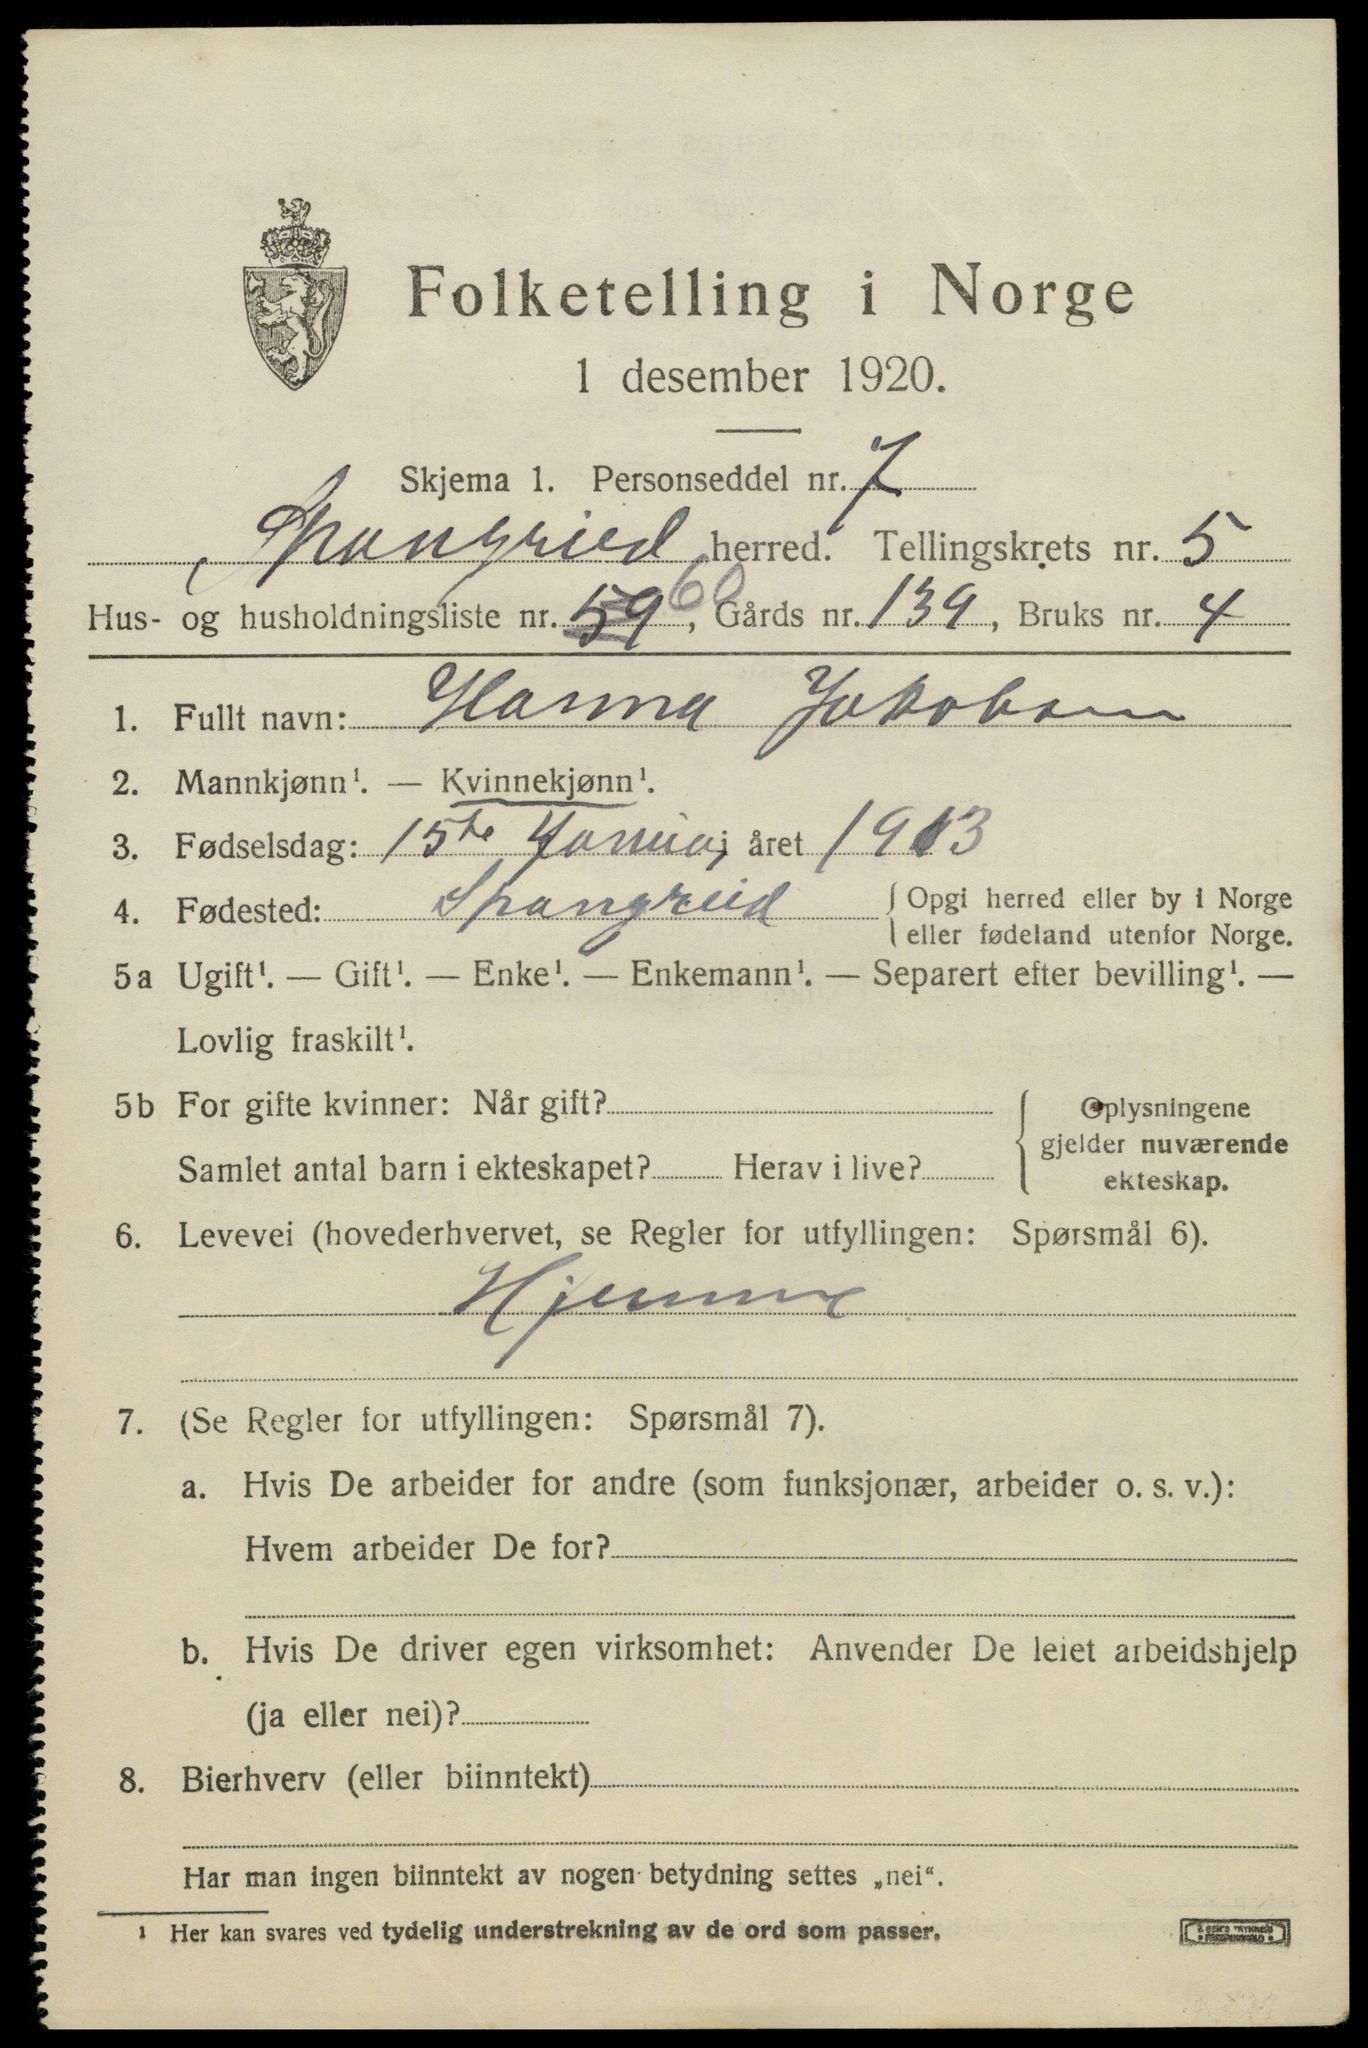 Folketelling i Norge
1 desember 1920.
Skjema 1. Personseddel nr. 7
Spangried herred. Tellingskrets nr. 5
Hus- og husholdningsliste nr. 59 60, Gårds nr. 139, Bruks nr. 4
1. Fullt navn: Hanna Jakobsen
2. Mannkjønn¹. — Kvinnekjønn¹.
3. Fødselsdag: 15te Januar året 1913
4. Fødested: Spangreid { Opgi herred eller by i Norge
eller fødeland utenfor Norge.
5a Ugift¹. — Gift¹. — Enke¹. — Enkemann¹. — Separert efter bevilling¹. —
Lovlig fraskilt¹.
5b For gifte kvinner: Når gift? { Oplysningene
gjelder nuværende
Samlet antal barn i ekteskapet? Herav i live? ekteskap.
6. Levevei (hovederhvervet, se Regler for utfyllingen: Spørsmål 6).
Hjemme
7. (Se Regler for utfyllingen: Spørsmål 7).
a. Hvis De arbeider for andre (som funksjonær, arbeider o. s. v.):
Hvem arbeider De for?
b. Hvis De driver egen virksomhet: Anvender De leiet arbeidshjelp
(ja eller nei)?
8. Bierhverv (eller biinntekt)
Har man ingen biinntekt av nogen betydning settes „nei“.
¹ Her kan svares ved tydelig understrekning av de ord som passer.